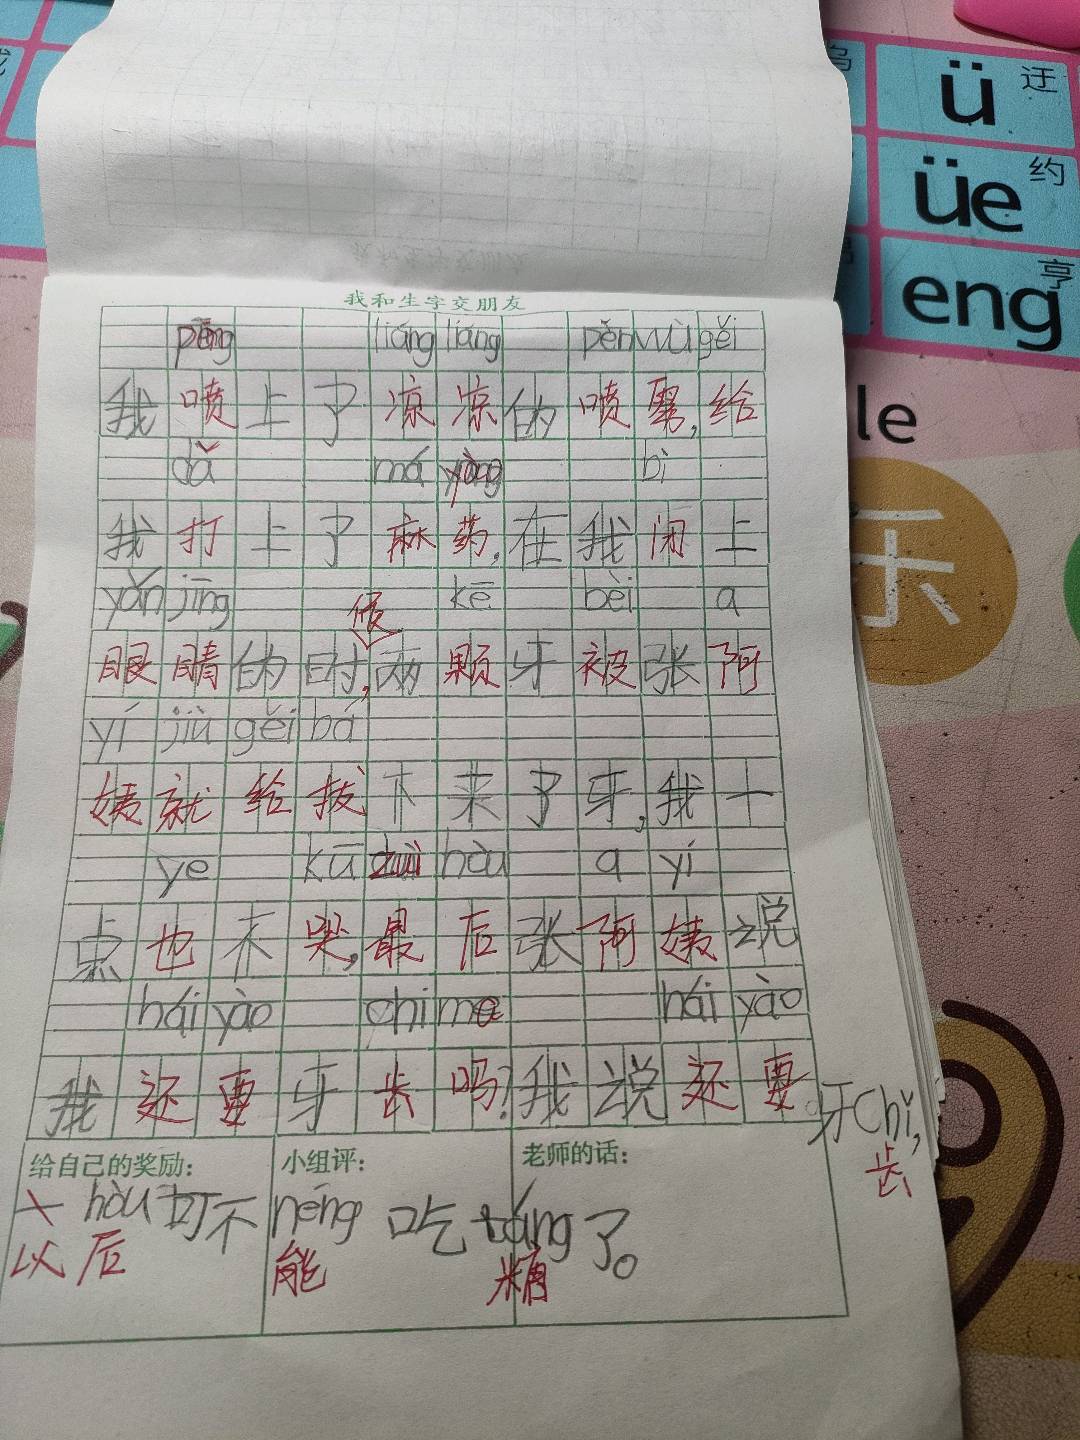 ü 迂
üe 约
eng 亨
le
乐
我和生字交朋友
pēng liáng liáng pēn wù gěi
我喷上了凉凉的喷雾,给
dǎ má yàng bì
我打上了麻药,在我闭上
yǎn jīng kē bèi a
候
眼睛的时,两颗牙被张阿
yí jiù gěi bá
姨就给拔下来了牙,我一
ye kū zuì hòu a yí
点也不哭,最后张阿姨说
hái yào chi ma hái yào
我还要牙齿吗?我说还要。牙Chǐ,
齿
给自己的奖励: 小组评: 老师的话:
hòu可不néng吃táng了。
以后 能 糖